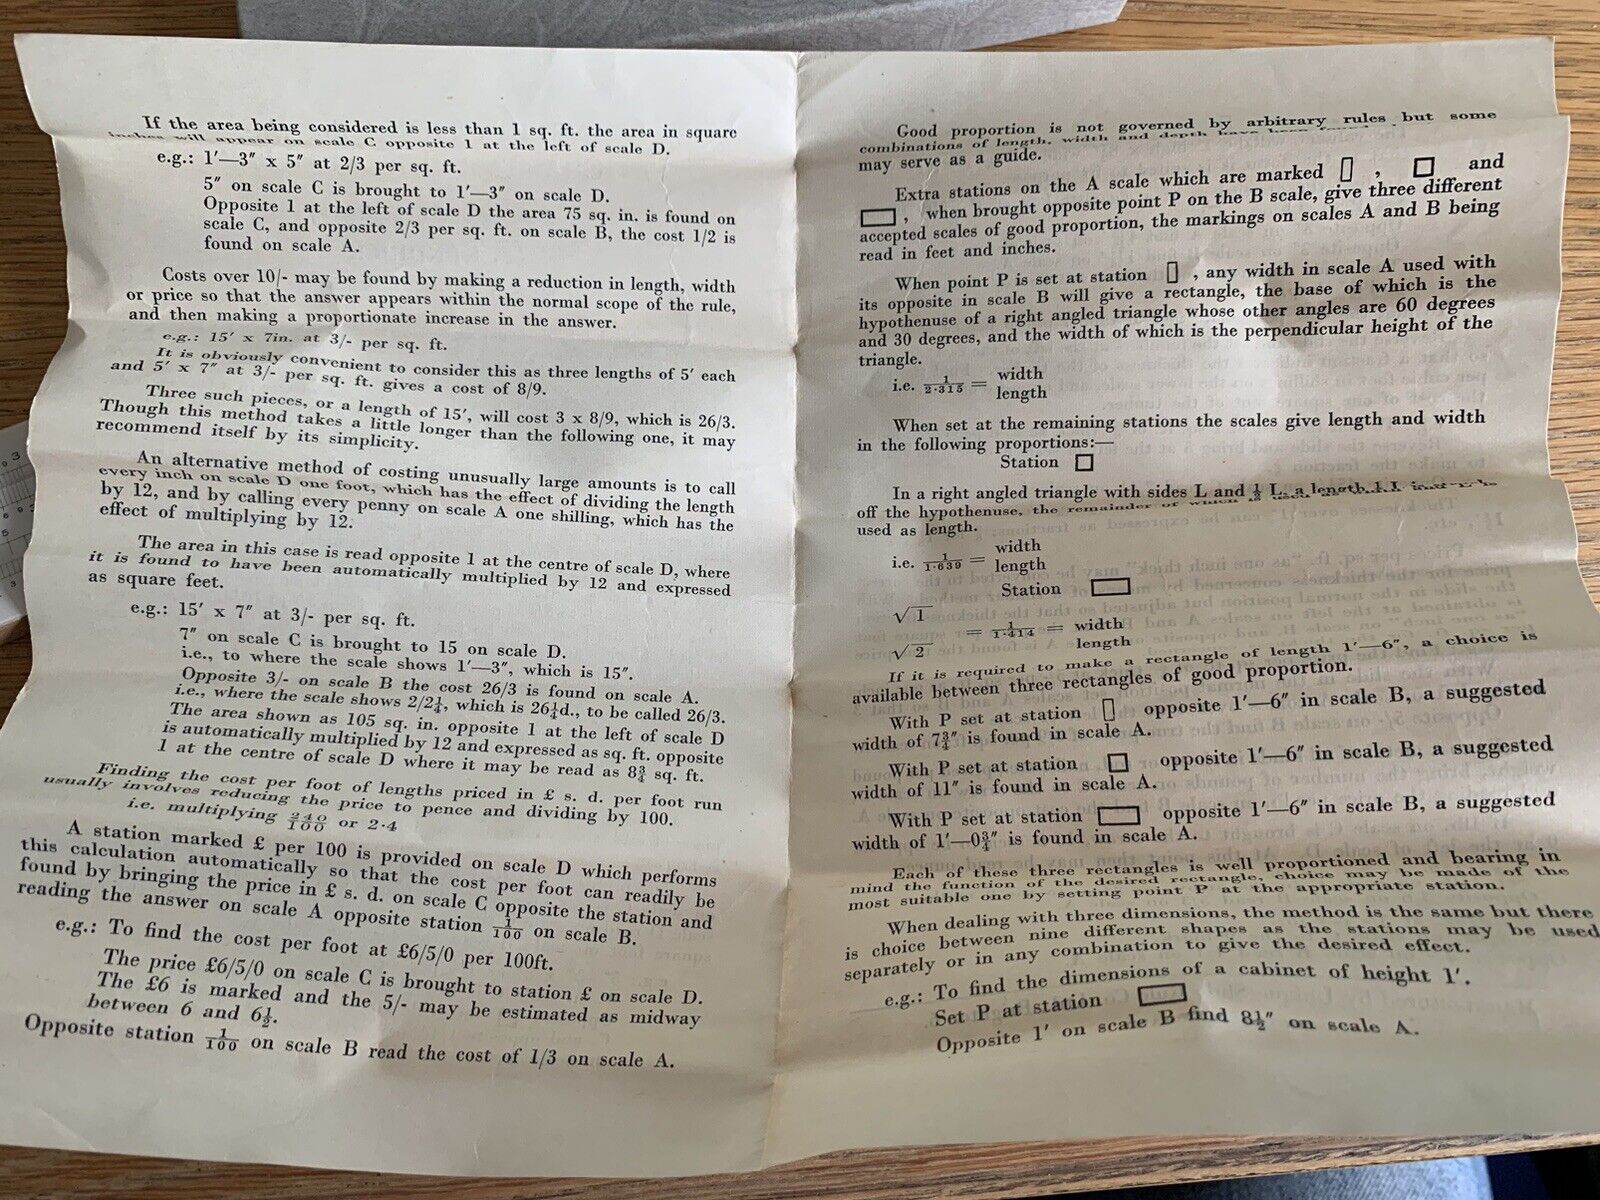 If the area being considered is less than 1 sq. ft. the area in square
inches will appear on scale C opposite 1 at the left of scale D.
e.g.: 1′—3″ x 5″ at 2/3 per sq. ft.
5″ on scale C is brought to 1′—3″ on scale D.
Opposite 1 at the left of scale D the area 75 sq. in. is found on
scale C, and opposite 2/3 per sq. ft. on scale B, the cost 1/2 is
found on scale A.
Costs over 10/- may be found by making a reduction in length, width
or price so that the answer appears within the normal scope of the rule,
and then making a proportionate increase in the answer.
e.g.: 15′ x 7in. at 3/- per sq. ft.
It is obviously convenient to consider this as three lengths of 5′ each
and 5′ x 7″ at 3/- per sq. ft. gives a cost of 8/9.
Three such pieces, or a length of 15′, will cost 3 x 8/9, which is 26/3.
Though this method takes a little longer than the following one, it may
recommend itself by its simplicity.
An alternative method of costing unusually large amounts is to call
every inch on scale D one foot, which has the effect of dividing the length
by 12, and by calling every penny on scale A one shilling, which has the
effect of multiplying by 12.
The area in this case is read opposite 1 at the centre of scale D, where
it is found to have been automatically multiplied by 12 and expressed
as square feet.
e.g.: 15′ x 7″ at 3/- per sq. ft.
7″ on scale C is brought to 15 on scale D.
i.e., to where the scale shows 1′—3″, which is 15″.
Opposite 3/- on scale B the cost 26/3 is found on scale A.
i.e., where the scale shows 2/2¼, which is 26¼d., to be called 26/3.
The area shown as 105 sq. in. opposite 1 at the left of scale D
is automatically multiplied by 12 and expressed as sq. ft. opposite
1 at the centre of scale D where it may be read as 8¾ sq. ft.
Finding the cost per foot of lengths priced in £ s. d. per foot run
usually involves reducing the price to pence and dividing by 100.
i.e. multiplying 240/100 or 2·4
A station marked £ per 100 is provided on scale D which performs
this calculation automatically so that the cost per foot can readily be
found by bringing the price in £ s. d. on scale C opposite the station and
reading the answer on scale A opposite station 1/100 on scale B.
e.g.: To find the cost per foot at £6/5/0 per 100ft.
The price £6/5/0 on scale C is brought to station £ on scale D.
The £6 is marked and the 5/- may be estimated as midway
between 6 and 6½.
Opposite station 1/100 on scale B read the cost of 1/3 on scale A.
Good proportion is not governed by arbitrary rules but some
combinations of length, width and depth have been
may serve as a guide.
Extra stations on the A scale which are marked ▯ , □ and
▭ , when brought opposite point P on the B scale, give three different
accepted scales of good proportion, the markings on scales A and B being
read in feet and inches.
When point P is set at station ▯ , any width in scale A used with
its opposite in scale B will give a rectangle, the base of which is the
hypothenuse of a right angled triangle whose other angles are 60 degrees
and 30 degrees, and the width of which is the perpendicular height of the
triangle.
i.e. 1/2·315 = width/length
When set at the remaining stations the scales give length and width
in the following proportions:—
Station □
In a right angled triangle with sides L and ½ L, a length
off the hypothenuse, the remainder of which
used as length.
i.e. 1/1·639 = width/length
Station ▭
√1/√2 = 1/1·414 = width/length
If it is required to make a rectangle of length 1′—6″, a choice is
available between three rectangles of good proportion.
With P set at station ▯ opposite 1′—6″ in scale B, a suggested
width of 7¾″ is found in scale A.
With P set at station □ opposite 1′—6″ in scale B, a suggested
width of 11″ is found in scale A.
With P set at station ▭ opposite 1′—6″ in scale B, a suggested
width of 1′—0¾″ is found in scale A.
Each of these three rectangles is well proportioned and bearing in
mind the function of the desired rectangle, choice may be made of the
most suitable one by setting point P at the appropriate station.
When dealing with three dimensions, the method is the same but there
is choice between nine different shapes as the stations may be used
separately or in any combination to give the desired effect.
e.g.: To find the dimensions of a cabinet of height 1′.
Set P at station ▭
Opposite 1′ on scale B find 8½″ on scale A.